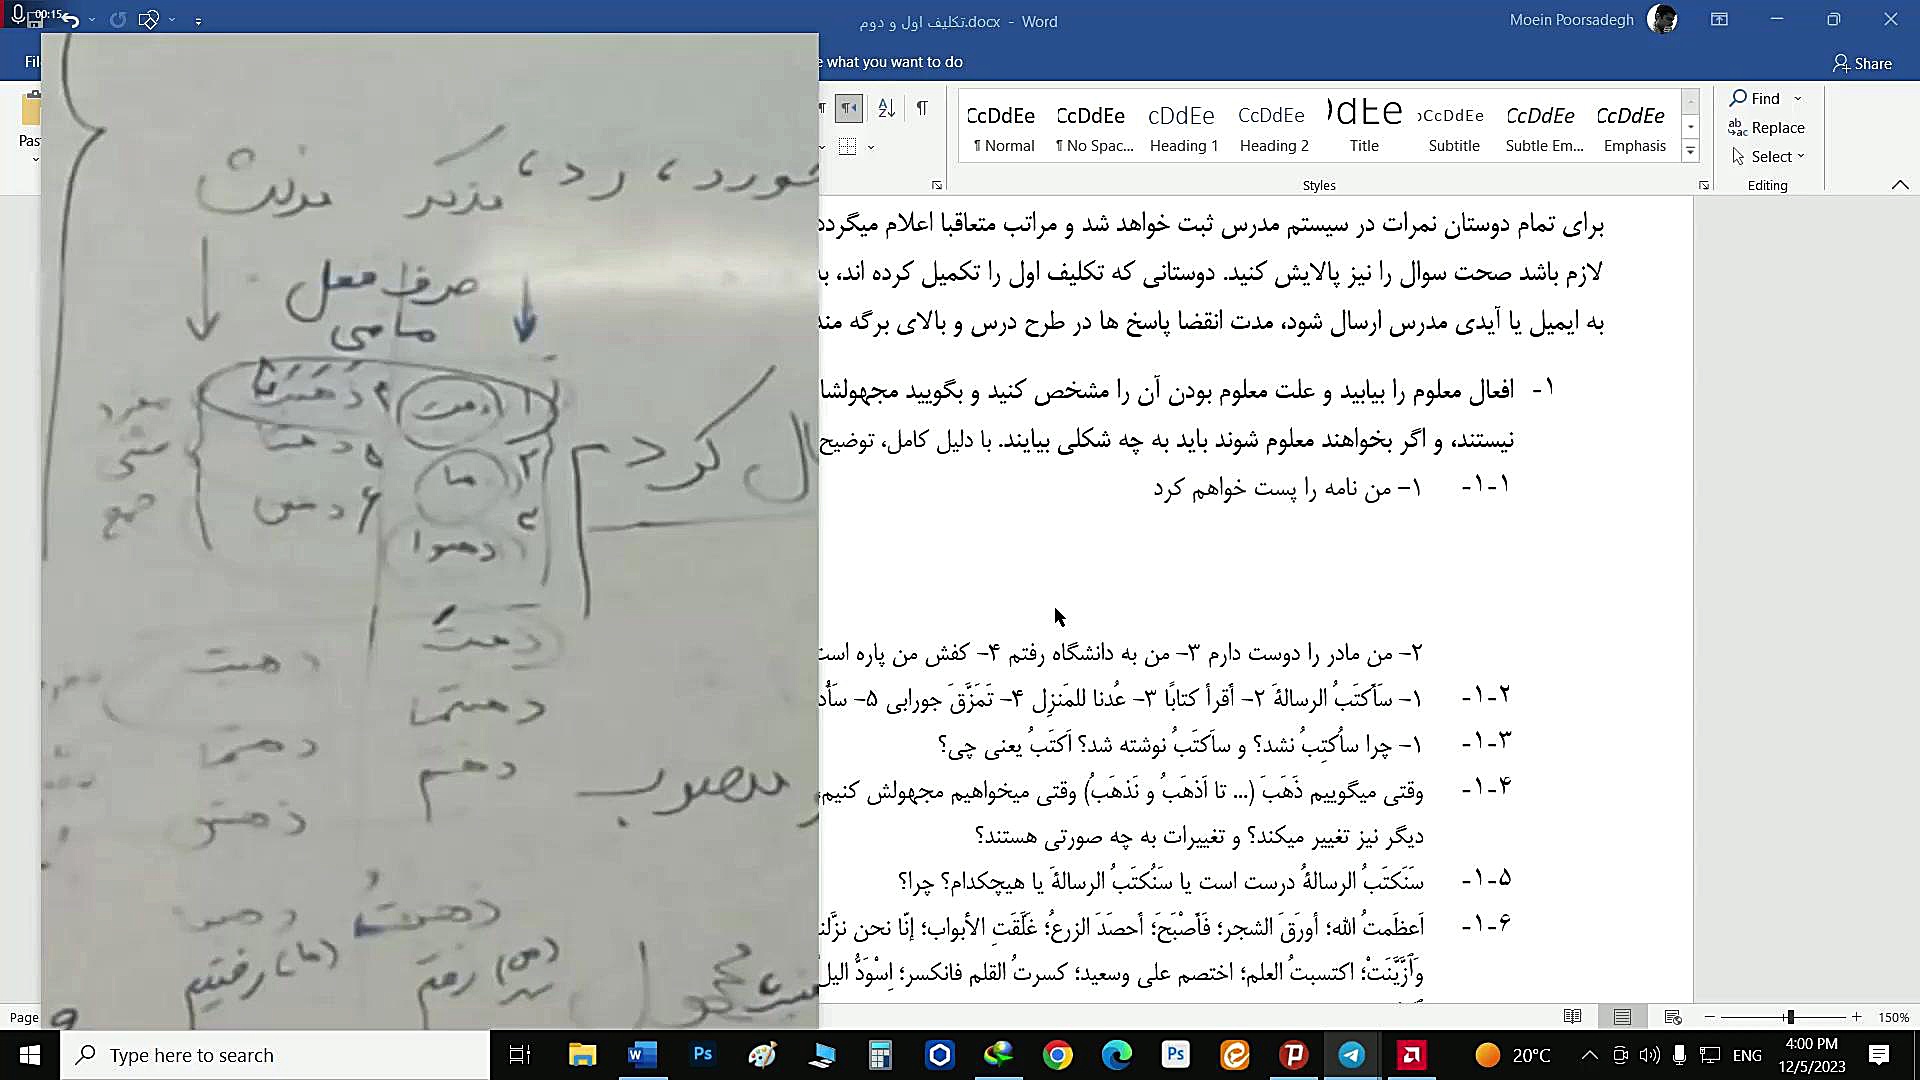 00:15
تکلیف اول و دوم.docx - Word
Moein Poorsadegh
Fil
e what you want to do
Share
Past
CcDdEe CcDdEe cDdEe CcDdEe DdEe CcDdEe CcDdEe CcDdEe
¶ Normal ¶ No Spac... Heading 1 Heading 2 Title Subtitle Subtle Em... Emphasis
Styles
Find
Replace
Select
Editing
مذکر مونث
صرف فعل
ماضی
مفرد
مثنی
جمع
ال کردم
منصوب
ذهبتُ
(من) رفتم (ما) رفتیم
مجهول
برای تمام دوستان نمرات در سیستم مدرس ثبت خواهد شد و مراتب متعاقبا اعلام میگردد
لازم باشد صحت سوال را نیز پالایش کنید. دوستانی که تکلیف اول را تکمیل کرده اند، به
به ایمیل یا آیدی مدرس ارسال شود، مدت انقضا پاسخ ها در طرح درس و بالای برگه مند
۱- افعال معلوم را بیابید و علت معلوم بودن آن را مشخص کنید و بگویید مجهولشا
نیستند، و اگر بخواهند معلوم شوند باید به چه شکلی بیایند. با دلیل کامل، توضیح
۱-۱- ۱– من نامه را پست خواهم کرد
۲– من مادر را دوست دارم ۳– من به دانشگاه رفتم ۴– کفش من پاره است
۱-۲- ۱– سَأَکتَبُ الرسالةَ ۲– أقرأ کتابًا ۳– عُدنا للمَنزِل ۴– تَمَزَّقَ جورابی ۵– سَأُد
۱-۳- ۱– چرا ساُکتِبُ نشد؟ و ساَکتَبُ نوشته شد؟ اَکتَبُ یعنی چی؟
۱-۴- وقتی میگوییم ذَهَبَ (... تا اَذهَبُ و نَذهَبُ) وقتی میخواهیم مجهولش کنیم،
دیگر نیز تغییر میکند؟ و تغییرات به چه صورتی هستند؟
۱-۵- سَنَکتَبُ الرسالةُ درست است یا سَنُکتَبُ الرسالةَ یا هیچکدام؟ چرا؟
۱-۶- اَعظَمتُ الله؛ أورَقَ الشجر؛ فَأَصْبَحَ؛ أحصَدَ الزرعُ؛ غَلَّقَتِ الأبواب؛ إنّا نحن نزَّلنا
وَٱزَّيَّنَتْ؛ اکتسبتُ العلم؛ اختصم علی وسعید؛ کسرتُ القلم فانکسر؛ اِسْوَدَّ الیل
Page
150%
Type here to search
20°C
ENG
4:00 PM
12/5/2023